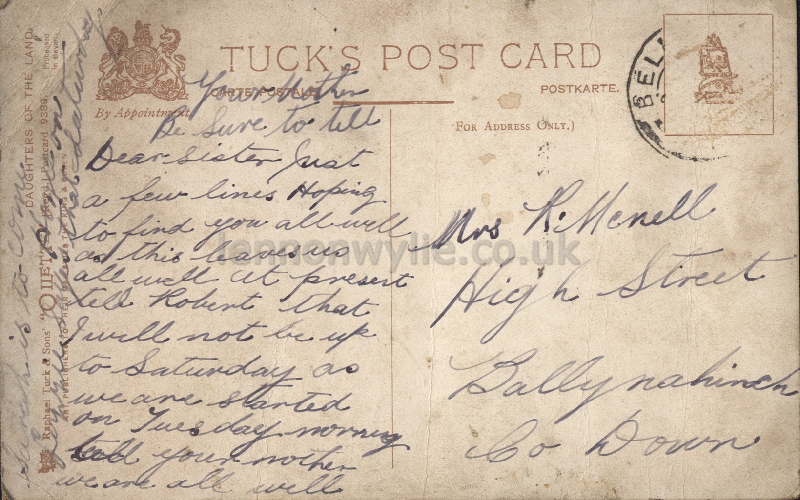 TUCK'S POST CARD
CARTE POSTALE
POSTKARTE.
By Appointment
(FOR ADDRESS ONLY.)
BEL
DAUGHTERS OF THE LAND
Raphael Tuck & Sons' "OILETTE"
Postcard
Your Mother
Be Sure to tell
Dear Sister Just
a few lines Hoping
to find you all well
as this leaves us
all well at present
tell Robert that
I will not be up
to Saturday as
we are started
on Tuesday morning
tell your mother
we are all well
is to come
that Saturday
Mrs R. Mcnell
High Street
Ballynahinch
Co Down
lennonwylie.co.uk